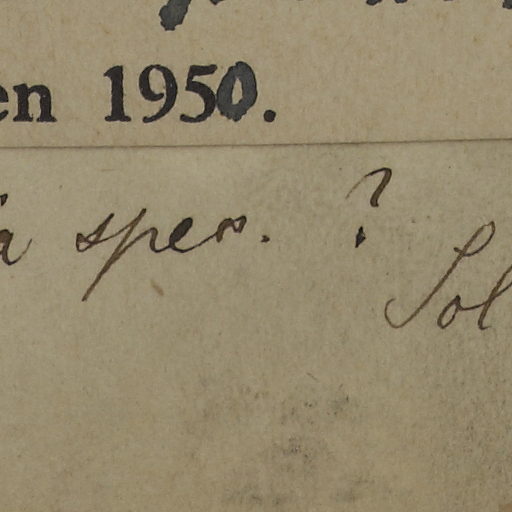 en 1950.
a spec. ?
Sol